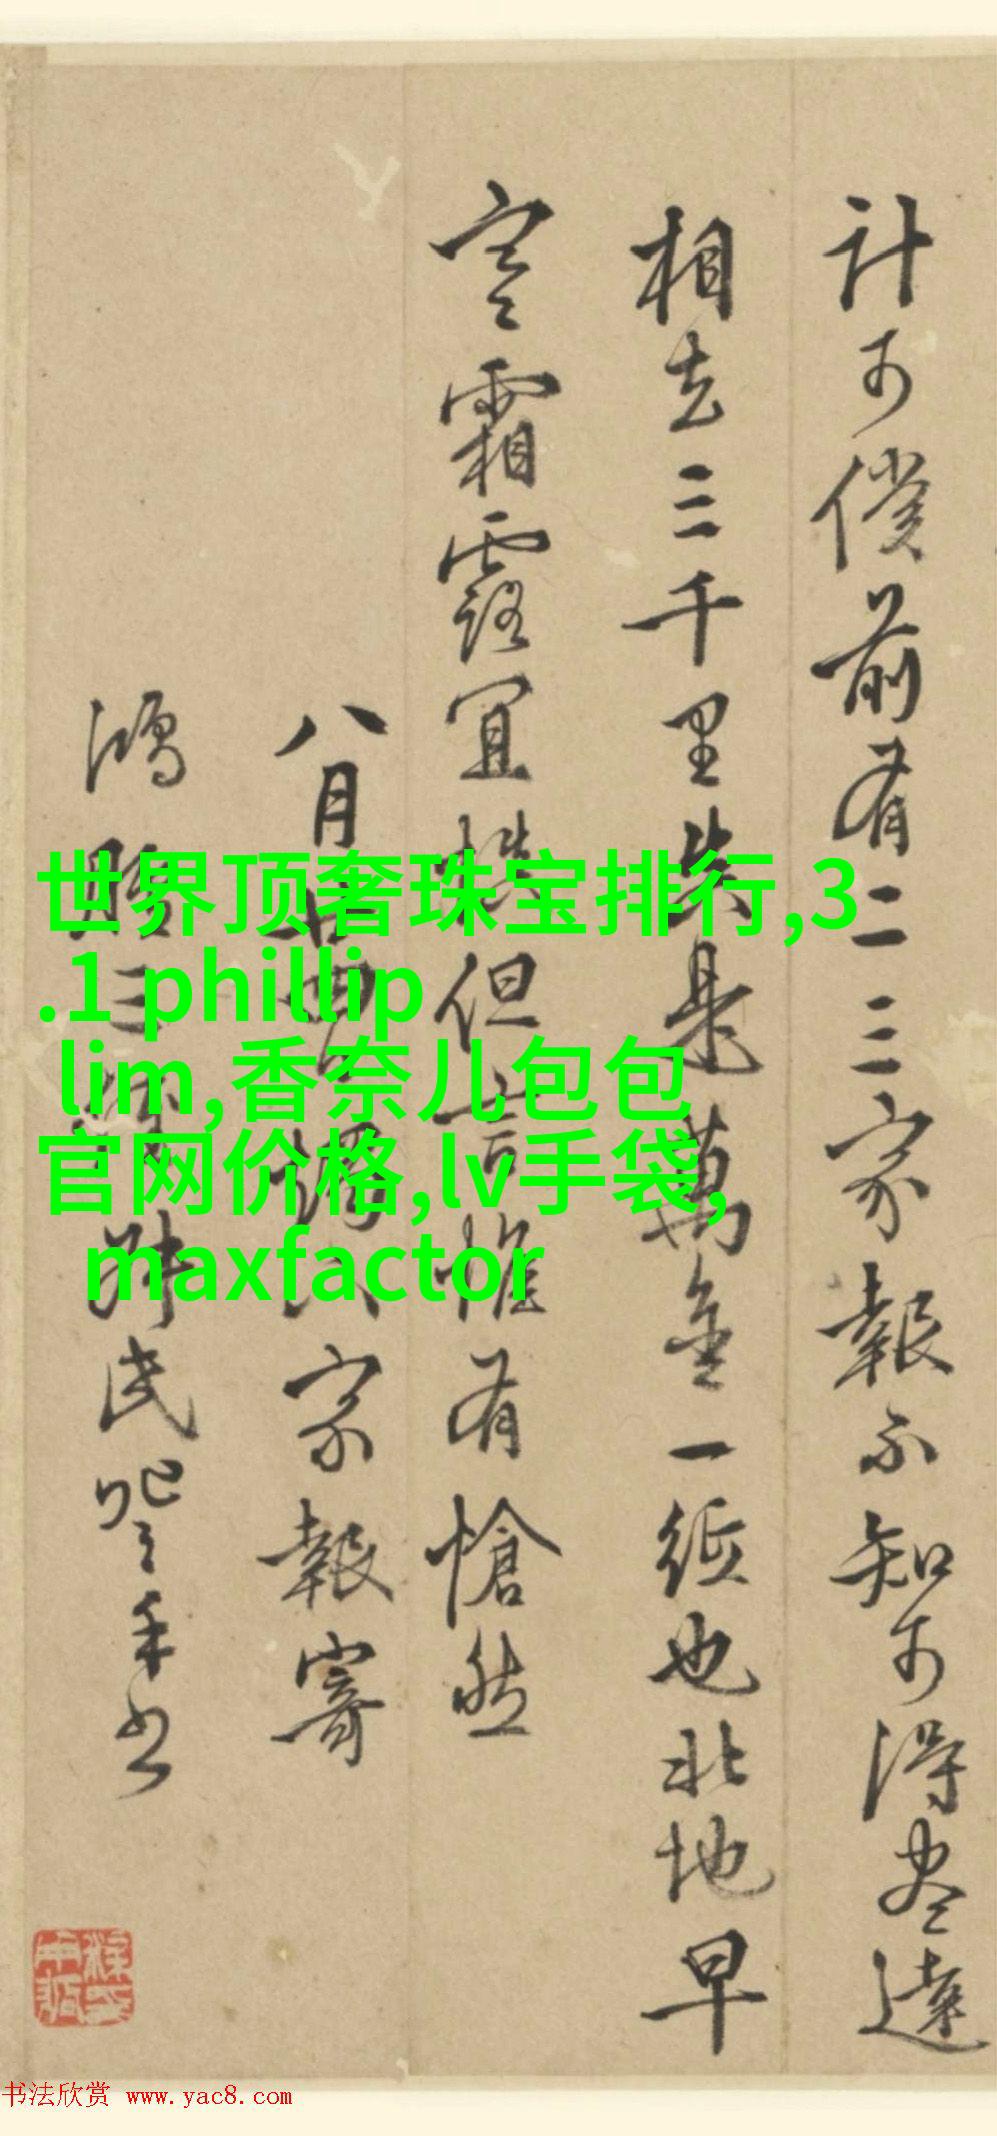 计可仆前有二三家報不知可得盡達
相去三千里共是萬金一紙也北地早
寒霜露宜慎但言惟有愴然
八月廿四日 家報寄
鴻
世界顶奢珠宝排行,3
.1 phillip
lim,香奈儿包包
官网价格,lv手袋,
maxfactor
书法欣赏 www.yac8.com